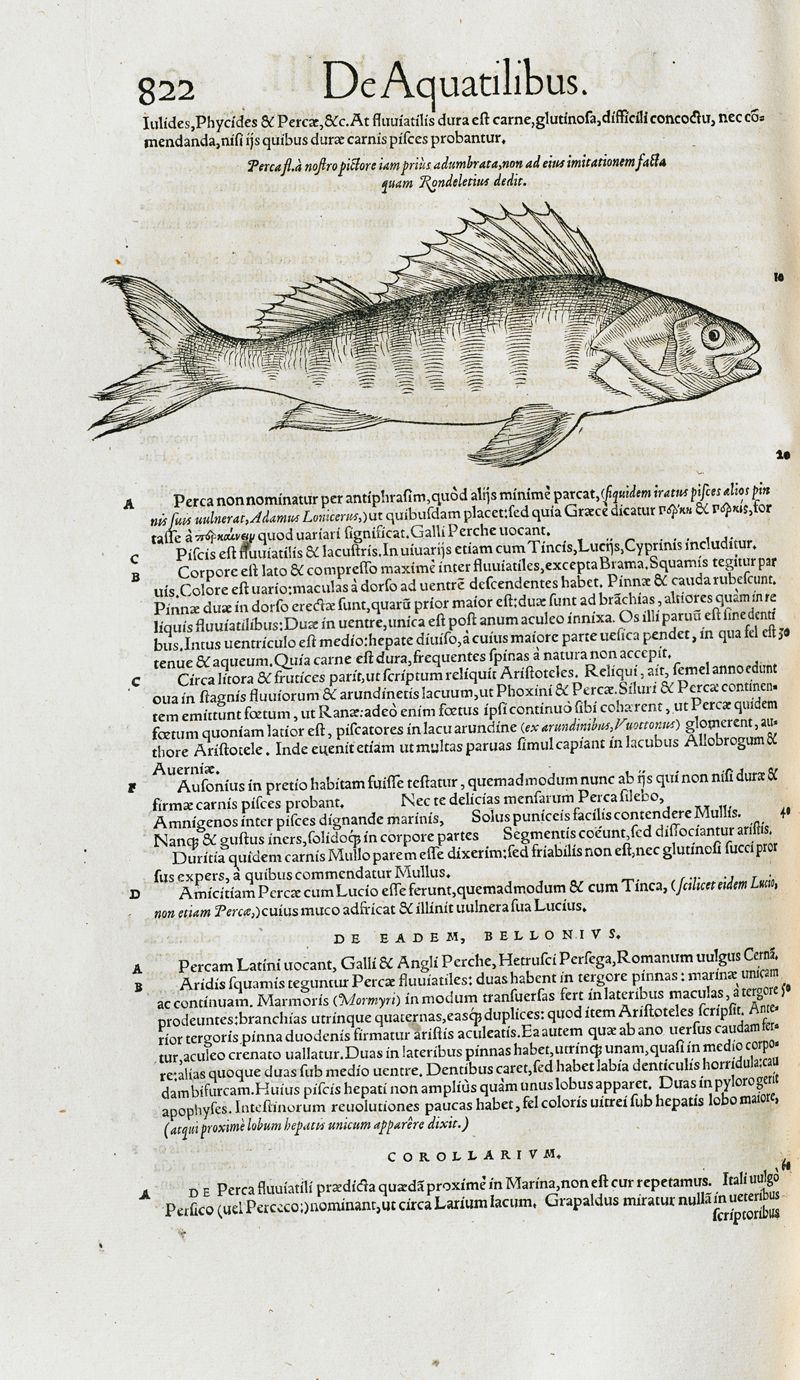 822 De Aquatilibus.
Iulides, Phycides & Percæ, &c. At fluuiatilis dura est carne, glutinosa, difficili concoctu, nec cō=
mendanda, nisi ijs quibus duræ carnis pisces probantur.
Perca fl. à nostro pictore iam priùs adumbrata, non ad eius imitationem facta
quam Rondeletius dedit.
10
20
A Perca non nominatur per antiphrasim, quòd alijs minimè parcat, (siquidem iratus pisces alios pin
nis suis uulnerat, Adamus Lonicerus,) ut quibusdam placet: sed quia Græcè dicatur πέρκη & πέρκις, for
tasse à περκάνειν quod uariari significat. Galli Perche uocant.
C Piscis est fluuiatilis & lacustris. In uiuarijs etiam cum Tincis, Lucijs, Cyprinis includitur.
B Corpore est lato & compresso maximè inter fluuiatiles, excepta Brama. Squamis tegitur par
uis. Colore est uario: maculas à dorso ad uentrē descendentes habet. Pinnæ & cauda rubescunt.
Pinnæ duæ in dorso erectæ sunt, quarū prior maior est: duæ sunt ad brāchias, altiores quàm in re
liquis fluuiatilibus: Duæ in uentre, unica est post anum aculeo innixa. Os illi paruū est sine denti
bus. Intus uentriculo est medio: hepate diuiso, à cuius maiore parte uesica pendet, in qua fel est 30
tenue & aqueum. Quia carne est dura, frequentes spinas à natura non accepit.
C Circa litora & frutices parit, ut scriptum reliquit Aristoteles. Reliqui, ait, semel anno edunt
oua in stagnis fluuiorum & arundinetis lacuum, ut Phoxini & Percæ. Siluri & Percæ continen=
tem emittunt fœtum, ut Ranæ: adeò enim fœtus ipsi continuò sibi cohærent, ut Percæ quidem
fœtum quoniam latior est, piscatores in lacu arundine (ex arundinibus, Vuottonus) glomerent, au=
thore Aristotele. Inde euenit etiam ut multas paruas simul capiant in lacubus Allobrogum &
Auerniæ.
F Ausonius in pretio habitam fuisse testatur, quemadmodum nunc ab ijs qui non nisi duræ &
firmæ carnis pisces probant. Nec te delicias mensarum Perca silebo,
Amnigenos inter pisces dignande marinis, Solus puniceis facilis contendere Mullis. 40
Nanq; & gustus iners, solidoq; in corpore partes Segmentis coëunt, sed dissociantur aristis.
Duritia quidem carnis Mullo parem esse dixerim: sed friabilis non est, nec glutinosi succi pror
sus expers, à quibus commendatur Mullus.
D Amicitiam Percæ cum Lucio esse ferunt, quemadmodum & cum Tinca, (scilicet eidem Lucio,
non etiam Percæ,) cuius muco adfricat & illinit uulnera sua Lucius.
DE EADEM, BELLONIVS.
A Percam Latini uocant, Galli & Angli Perche, Hetrusci Persega, Romanum uulgus Cernā.
B Aridis squamis teguntur Percæ fluuiatiles: duas habent in tergore pinnas: marinæ unicam
ac continuam. Marmoris (Mormyri) in modum transuersas fert in lateribus maculas, à tergore 50
prodeuntes: branchias utrinque quaternas, easq; duplices: quod item Aristoteles scripsit. Ante=
rior tergoris pinna duodenis firmatur aristis aculeatis. Ea autem quæ ab ano uersus caudam fer=
tur, aculeo crenato uallatur. Duas in lateribus pinnas habet, utrinq; unam, quasi in medio corpo=
re: alias quoque duas sub medio uentre. Dentibus caret, sed habet labia denticulis horridula: cau
dam bifurcam. Huius piscis hepati non ampliùs quàm unus lobus apparet. Duas in pyloro gerit
apophyses. Intestinorum reuolutiones paucas habet, fel coloris uitrei sub hepatis lobo maiore,
(atqui proximè lobum hepatis unicum apparêre dixit.)
COROLLARIVM.
60
A DE Perca fluuiatili prædicta quædā proximè in Marina, non est cur repetamus. Itali uulgo
Persico (uel Perceco:) nominant, ut circa Larium lacum. Grapaldus miratur nullā in ueteribus
scriptoribus